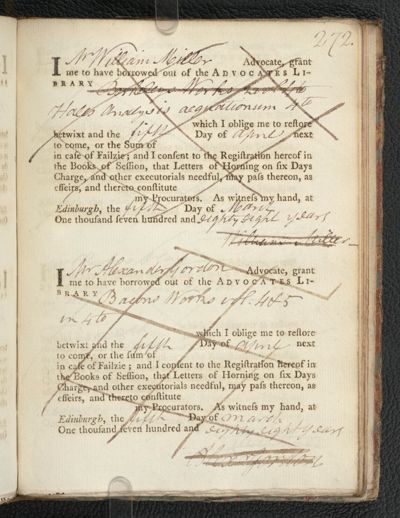 272.
I Mr William Miller Advocate, grant
me to have borrowed out of the ADVOCATES LI-
BRARY Works vol
Hales Analysis aequationum 4to
which I oblige me to restore
betwixt and the fifth Day of April next
to come, or the Sum of
in case of Failzie; and I consent to the Registration hereof in
the Books of Session, that Letters of Horning on six Days
Charge, and other executorials needful, may pass thereon, as
effeirs, and thereto constitute
my Procurators. As witness my hand, at
Edinburgh, the fifth Day of March
One thousand seven hundred and eighty eight years
William Miller
I Mr Alexander Gordon Advocate, grant
me to have borrowed out of the ADVOCATES LI-
BRARY Bacons Works vol. 4 & 5
in 4to
which I oblige me to restore
betwixt and the fifth Day of April next
to come, or the sum of
in case of Failzie; and I consent to the Registration hereof in
the Books of Session, that Letters of Horning on six Days
Charge, and other executorials needful, may pass thereon, as
effeirs, and thereto constitute
my Procurators. As witness my hand, at
Edinburgh, the fifth Day of March
One thousand seven hundred and eighty eight years
Alex Gordon